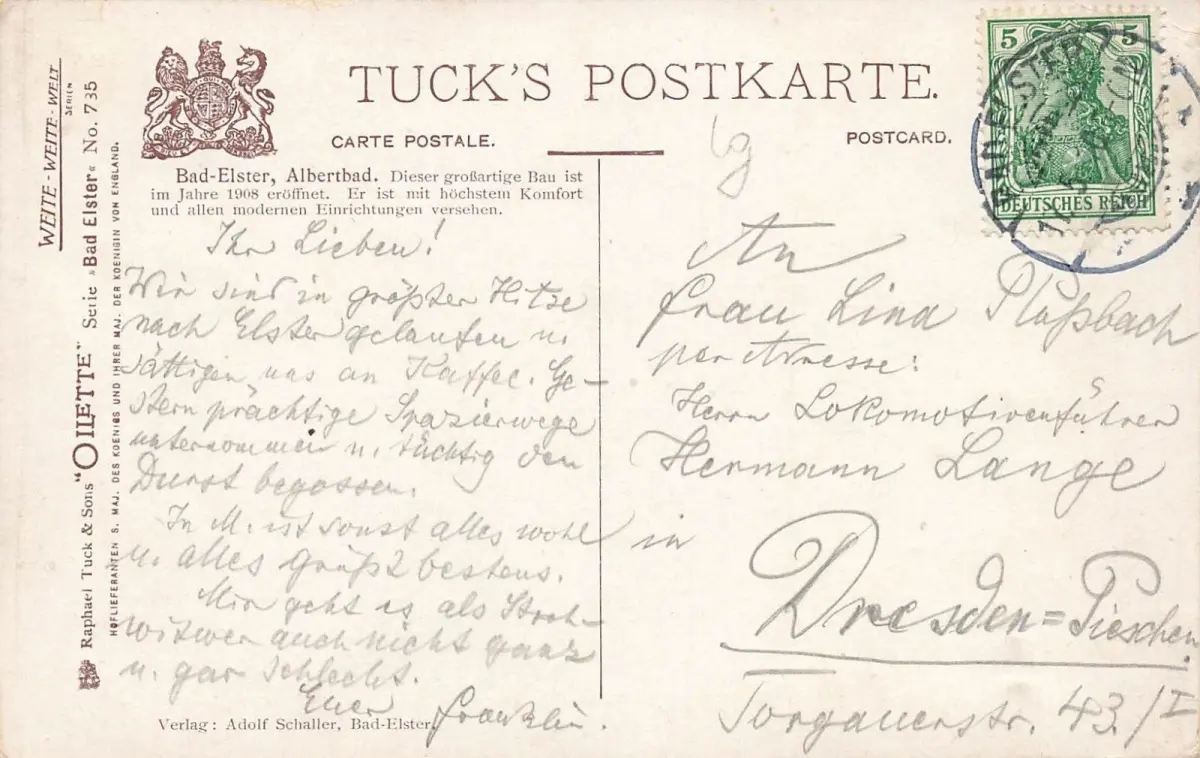 WEITE-WEITE-WELT
SERIEN
Raphael Tuck & Sons "OILETTE" Serie »Bad Elster« No. 735
HOFLIEFERANTEN S. MAJ. DES KOENIGS UND IHRER MAJ. DER KOENIGIN VON ENGLAND.
TUCK'S POSTKARTE.
CARTE POSTALE.
POSTCARD.
Bad-Elster, Albertbad. Dieser großartige Bau ist
im Jahre 1908 eröffnet. Er ist mit höchstem Komfort
und allen modernen Einrichtungen versehen.
Ihr Lieben!
Wir sind in größter Hitze
nach Elster gelaufen u.
sättigen uns an Kaffee. Ge-
stern prächtige Spazierwege
unternommen u. tüchtig den
Durst begossen.
In M. ist sonst alles wohl
u. alles grüßt bestens.
Mir geht es als Stroh-
witwer auch nicht ganz
u. gar schlecht.
Euer Franklin.
Verlag: Adolf Schaller, Bad-Elster.
5 5
DEUTSCHES REICH
BAD ELSTER
An
Frau Lina Plaßbach
per Adresse:
Herrn Lokomotivenführer
Hermann Lange
in
Dresden=Pieschen
Torgauerstr. 43./I